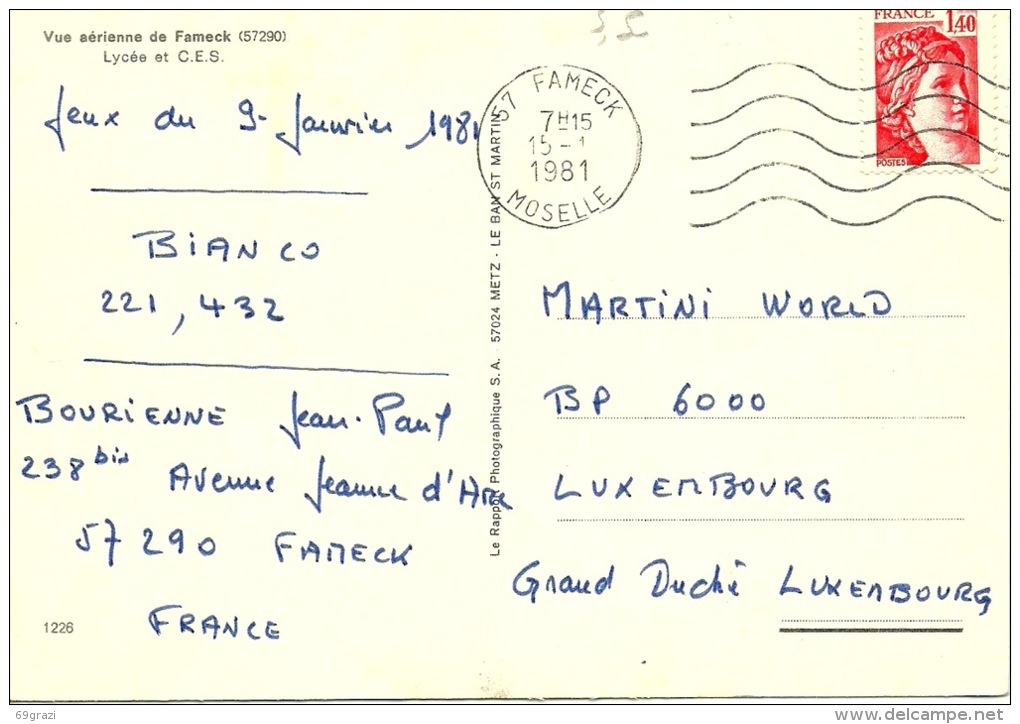 Vue aérienne de Fameck (57290)
Lycée et C.E.S.
Jeux du 9 Janvier 1981
BIANCO
221, 432
BOURIENNE Jean-Paul
238 bis Avenue Jeanne d'Arc
57 290 FAMECK
FRANCE
1226
Le Rapport Photographique S.A. 57024 METZ - LE BAN ST MARTIN
57 FAMECK
7H15
15-1
1981
MOSELLE
FRANCE
1,40
POSTES
MARTINI WORLD
BP 6000
LUXEMBOURG
Grand Duché LUXEMBOURG
69grazi
www.delcampe.net